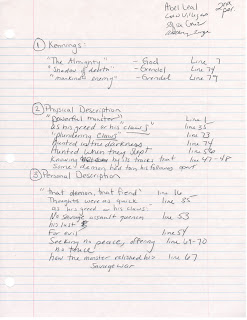 Abel Leal
2nd per.
① Kennings:
"The Almighty" - God Line 7
"Shadow of death" - Grendel Line 74
"mankind's enemy" - Grendel Line 79
② Physical Description
"powerful monster" line 1
as his greed or his claws line 35
plundering claws line 73
hunted in the darkness line 74
Hunted when they slept line
Knowing by its tracks that line 47-48
Some demon
③ Personal Description
"that demon, that fiend" line 16
Thoughts were as quick line 35
as his greed or his claws
No savage assault quench line 53
his lust
For evil line 54
Seeking no peace, offering line 69-70
no truce
how the monster relished his line 67
savage war